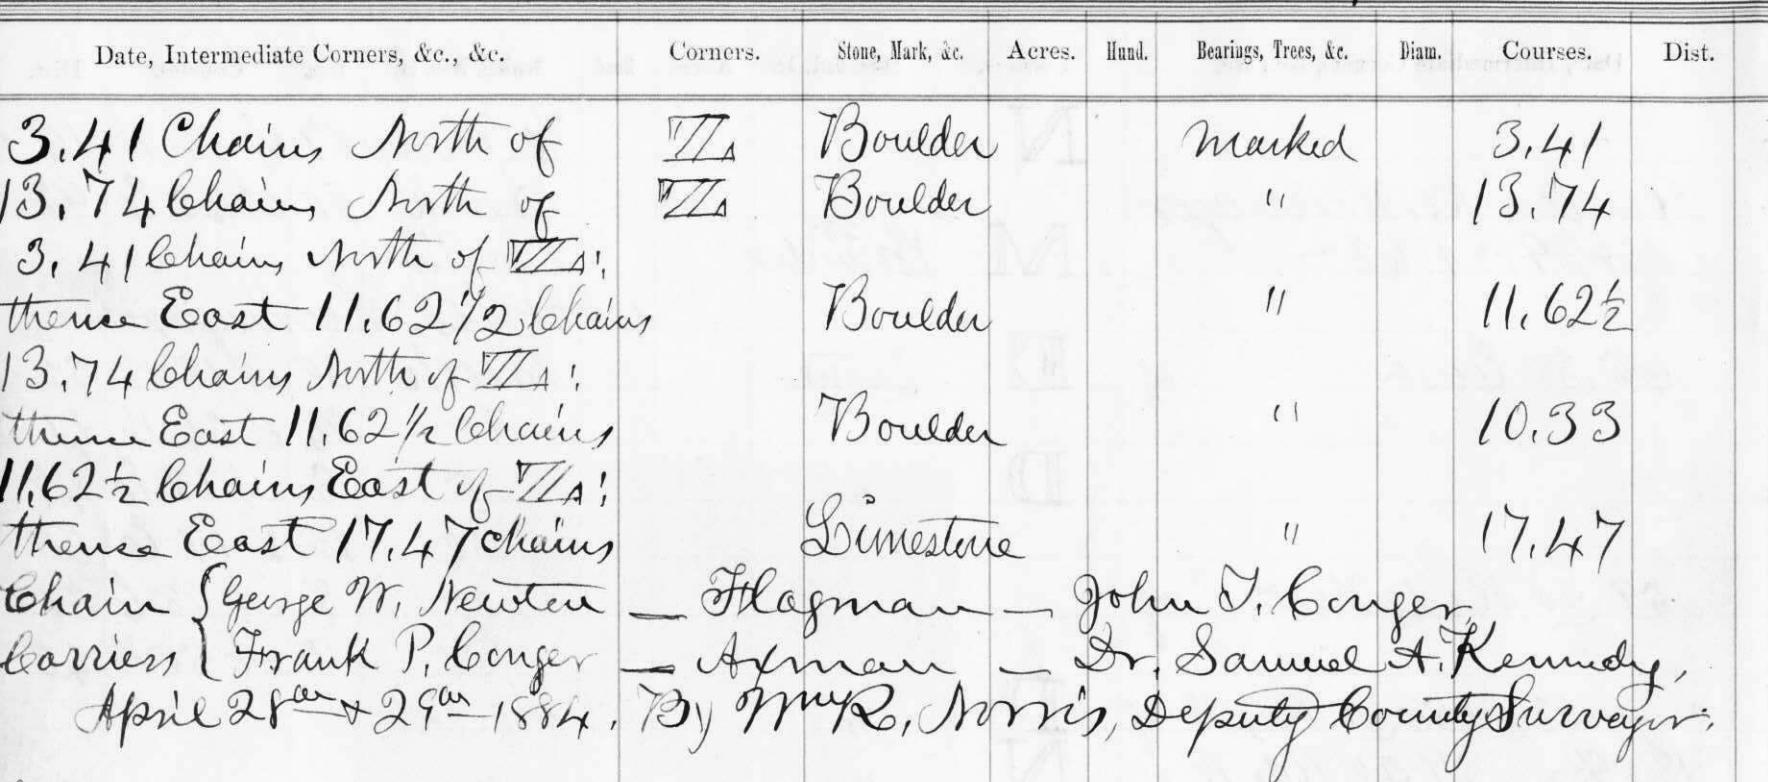 Date, Intermediate Corners, &c., &c. Corners. Stone, Mark, &c. Acres. Hund. Bearings, Trees, &c. Diam. Courses. Dist.
3.41 Chains North of Boulder Marked 3.41
13.74 Chains North of Boulder " 13.74
3.41 Chains North of
thence East 11.62 1/2 Chains Boulder " 11.62 1/2
13.74 Chains North of
thence East 11.62 1/2 Chains Boulder " 10.33
11.62 1/2 Chains East of
thence East 17.47 chains Limestone " 17.47
Chain { George W. Newton — Flagman — John T. Conger,
Carriers { Frank P. Conger — Axman — Dr. Samuel A. Kennedy,
April 28 & 29 1884. By Wm R. Norris, Deputy County Surveyor.